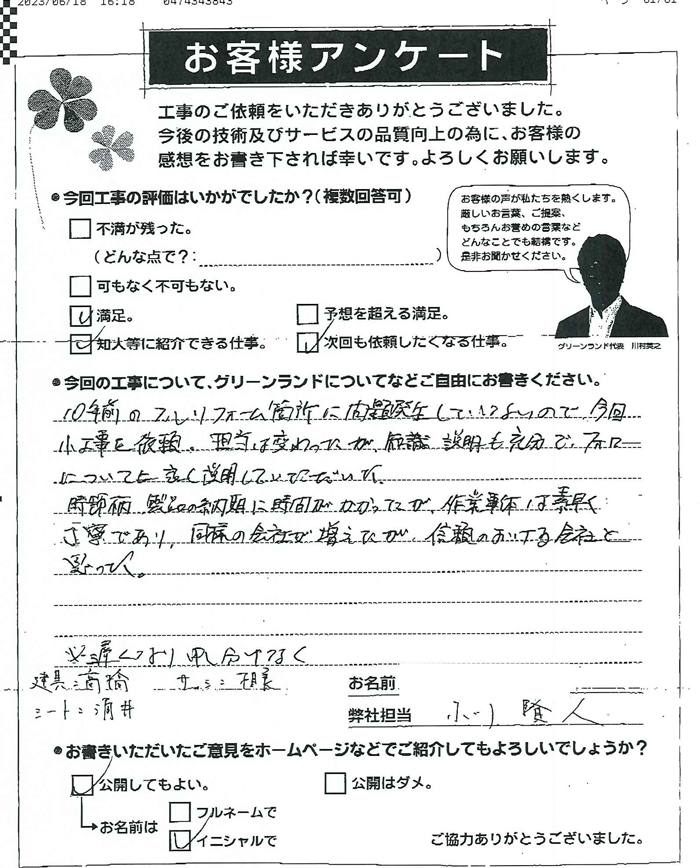 2023/06/18 16:18 0474343843
お客様アンケート
工事のご依頼をいただきありがとうございました。
今後の技術及びサービスの品質向上の為に、お客様の
感想をお書き下されば幸いです。よろしくお願いします。
今回工事の評価はいかがでしたか?(複数回答可)
不満が残った。
(どんな点で?: )
可もなく不可もない。
満足。
予想を超える満足。
知人等に紹介できる仕事。
次回も依頼したくなる仕事。
お客様の声が私たちを熱くします。
厳しいお言葉、ご提案、
もちろんお誉めの言葉など
どんなことでも結構です。
是非お聞かせください。
グリーンランド代表 川村英之
今回の工事について、グリーンランドについてなどご自由にお書きください。
10年前のフルリフォーム箇所に問題発生していないので、今回
小工事を依頼。担当は変わったが、知識、説明も充分で、フォロー
についても良く説明していただいた。
時節柄 製品の納期に時間がかかったが、作業事体は素早く
丁寧であり、同様の会社が増えたが、信頼のおける会社と
思った。
遅くなり申し分けなく
建具:高橋 サッシ:相様
シート:酒井
お名前
弊社担当 賢人
お書きいただいたご意見をホームページなどでご紹介してもよろしいでしょうか?
公開してもよい。
公開はダメ。
お名前は
フルネームで
イニシャルで
ご協力ありがとうございました。